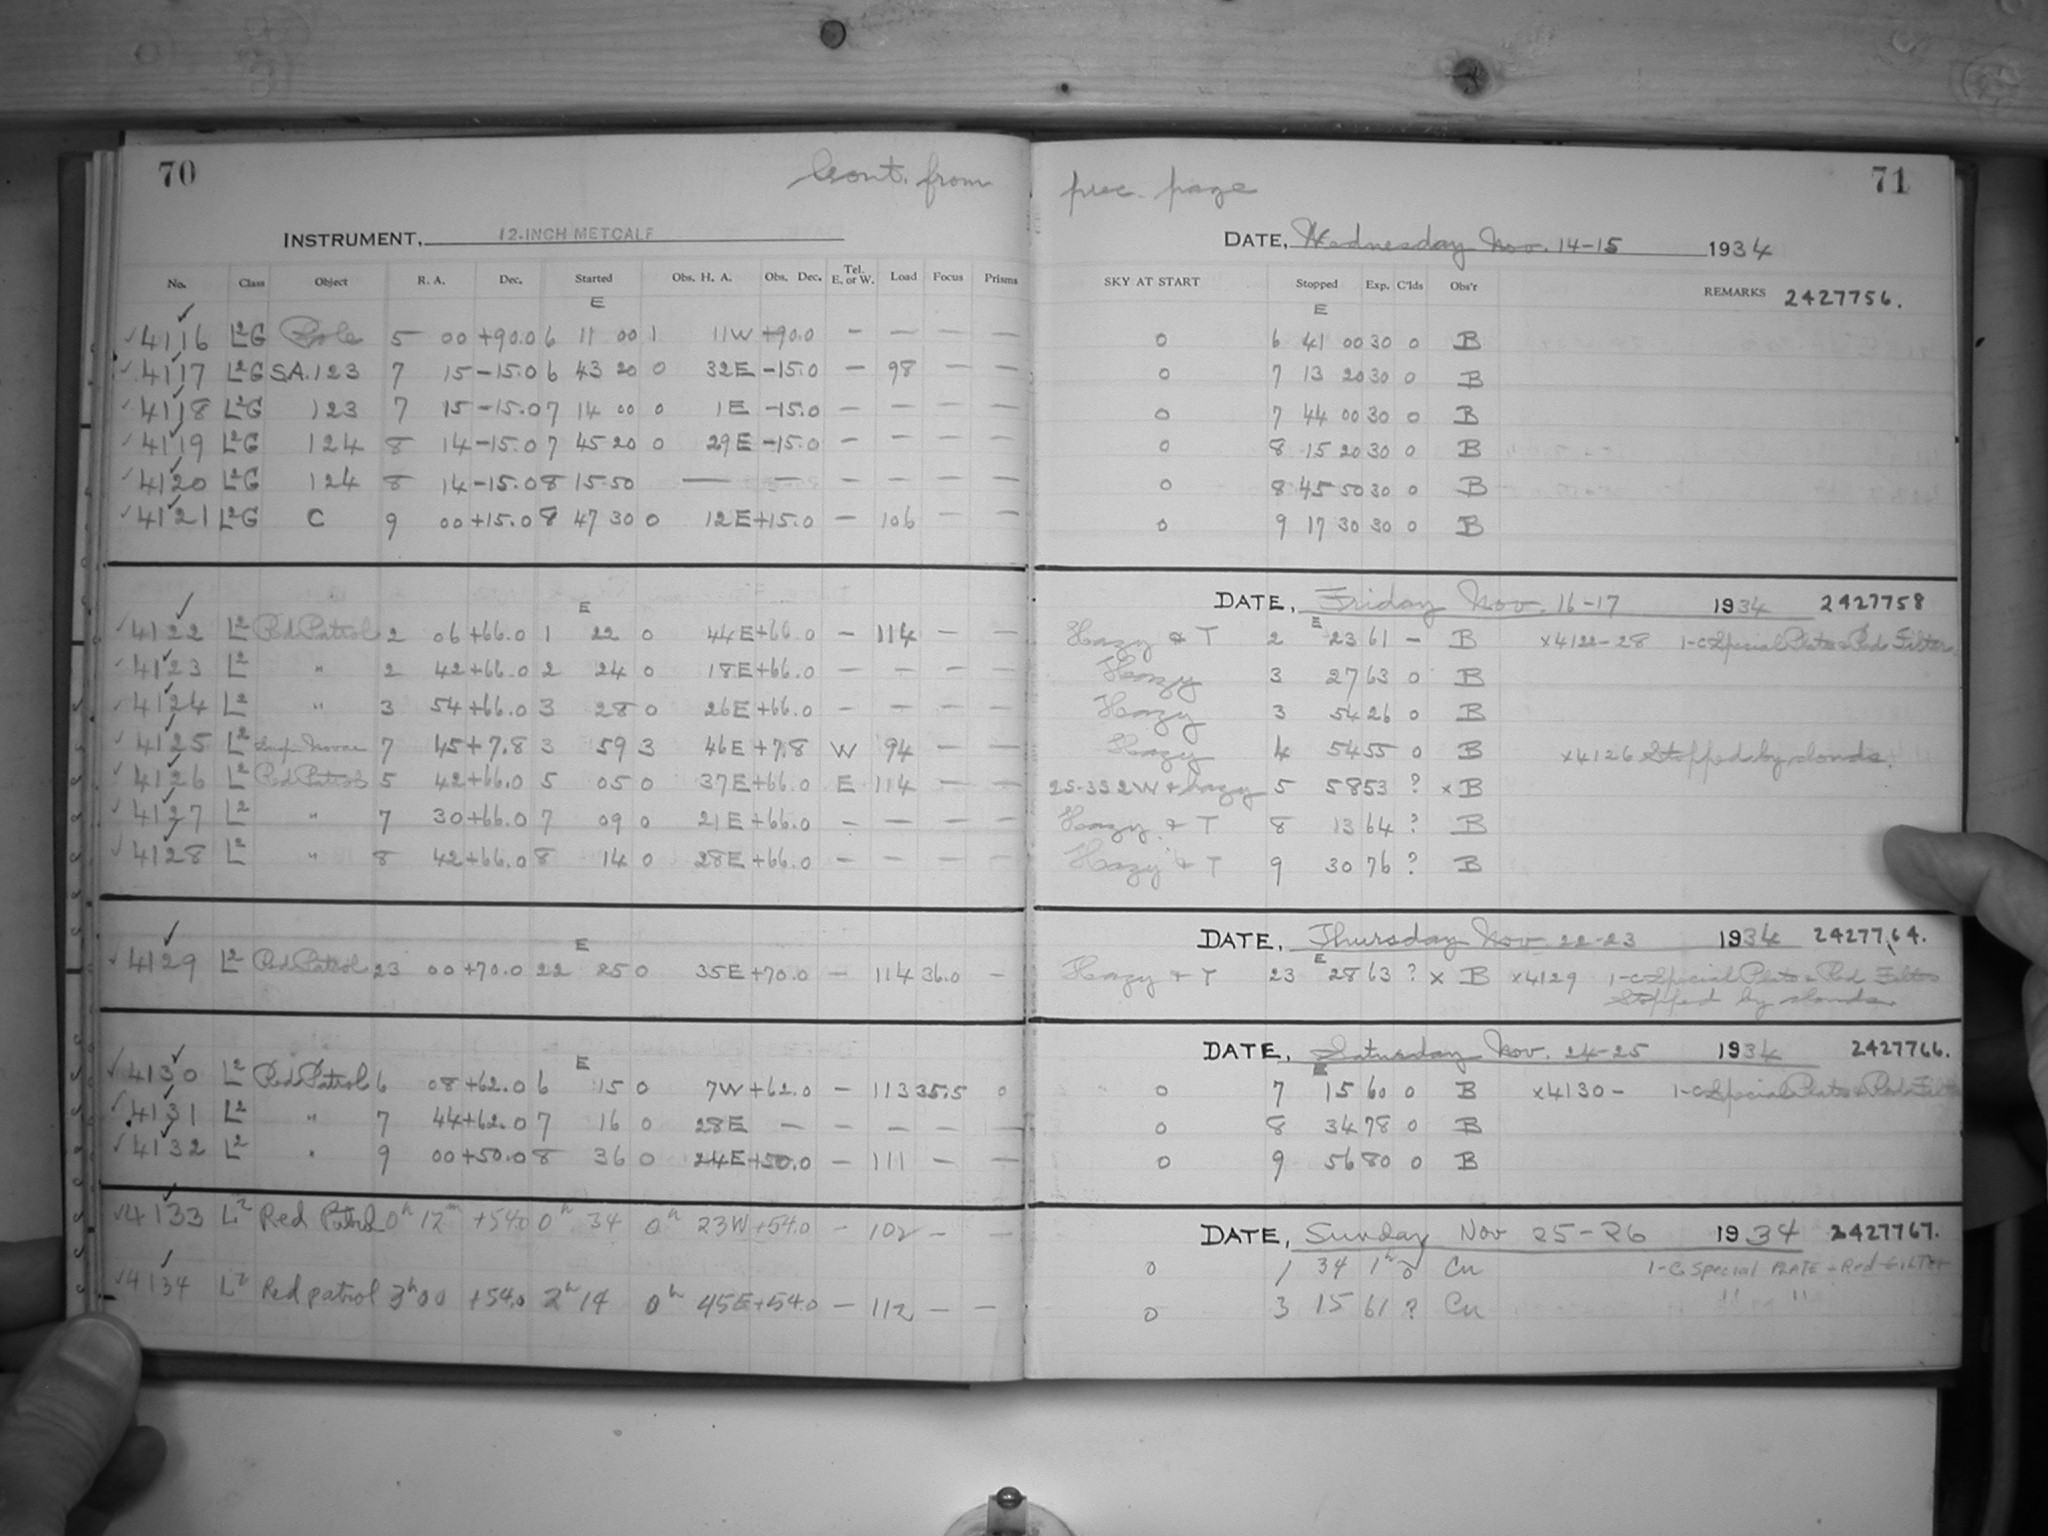 70
Cont. from
prec. page
71
INSTRUMENT, 12-INCH METCALF
DATE, Wednesday Nov. 14-15 1934
No. Class Object R. A. Dec. Started Obs. H. A. Obs. Dec. Tel. E. or W. Load Focus Prisms SKY AT START Stopped Exp. C'lds Obs'r REMARKS 2427756.
E E
4116 L2G Pole 5 00 +90.0 6 11 00 1 11W +90.0 — — — — 0 6 41 00 30 0 B
4117 L2G S.A. 123 7 15 -15.0 6 43 20 0 32E -15.0 — 98 — — 0 7 13 20 30 0 B
4118 L2G 123 7 15 -15.0 7 14 00 0 1E -15.0 — — — — 0 7 44 00 30 0 B
4119 L2G 124 8 14 -15.0 7 45 20 0 29E -15.0 — — — — 0 8 15 20 30 0 B
4120 L2G 124 8 14 -15.0 8 15 50 — — — — — — 0 8 45 50 30 0 B
4121 L2G C 9 00 +15.0 8 47 30 0 12E +15.0 — 106 — — 0 9 17 30 30 0 B
DATE, Friday Nov. 16-17 1934 2427758
E E
4122 L2 Red Patrol 2 06 +66.0 1 22 0 44E +66.0 — 114 — — Hazy & T 2 23 61 — B x4122-28 1-C Special Plate & Red Filter
4123 L2 " 2 42 +66.0 2 24 0 18E +66.0 — — — — Hazy 3 27 63 0 B
4124 L2 " 3 54 +66.0 3 28 0 26E +66.0 — — — — Hazy 3 54 26 0 B
4125 L2 Novae 7 45 +7.8 3 59 3 46E +7.8 W 94 — — Hazy 4 54 55 0 B x4126 Stopped by clouds.
4126 L2 Red Patrol 5 42 +66.0 5 05 0 37E +66.0 E 114 — — 25-35 2W & hazy 5 58 53 ? x B
4127 L2 " 7 30 +66.0 7 09 0 21E +66.0 — — — — Hazy & T 8 13 64 ? B
4128 L2 " 8 42 +66.0 8 14 0 28E +66.0 — — — — Hazy & T 9 30 76 ? B
DATE, Thursday Nov 22-23 1934 2427764.
E E
4129 L2 Red Patrol 23 00 +70.0 22 25 0 35E +70.0 — 114 36.0 — Hazy & T 23 28 63 ? x B x4129 1-C Special Plate & Red Filter
Stopped by clouds.
DATE, Saturday Nov. 24-25 1934 2427766.
E E
4130 L2 Red Patrol 6 08 +62.0 6 15 0 7W +62.0 — 113 35.5 0 0 7 15 60 0 B x4130 - 1-C Special Plate & Red Filter
4131 L2 " 7 44 +62.0 7 16 0 28E — — — — — 0 8 34 78 0 B
4132 L2 " 9 00 +50.0 8 36 0 24E +50.0 — 111 — — 0 9 56 80 0 B
DATE, Sunday Nov 25-26 1934 2427767.
4133 L2 Red Patrol 0h 12m +54.0 0h 34 0h 23W +54.0 — 102 — — 0 1 34 1h 0 Cu 1-C Special PLATE + Red FILTER
4134 L2 Red patrol 3h 00 +54.0 2h 14 0h 45E +54.0 — 112 — — 0 3 15 61 ? Cu " "